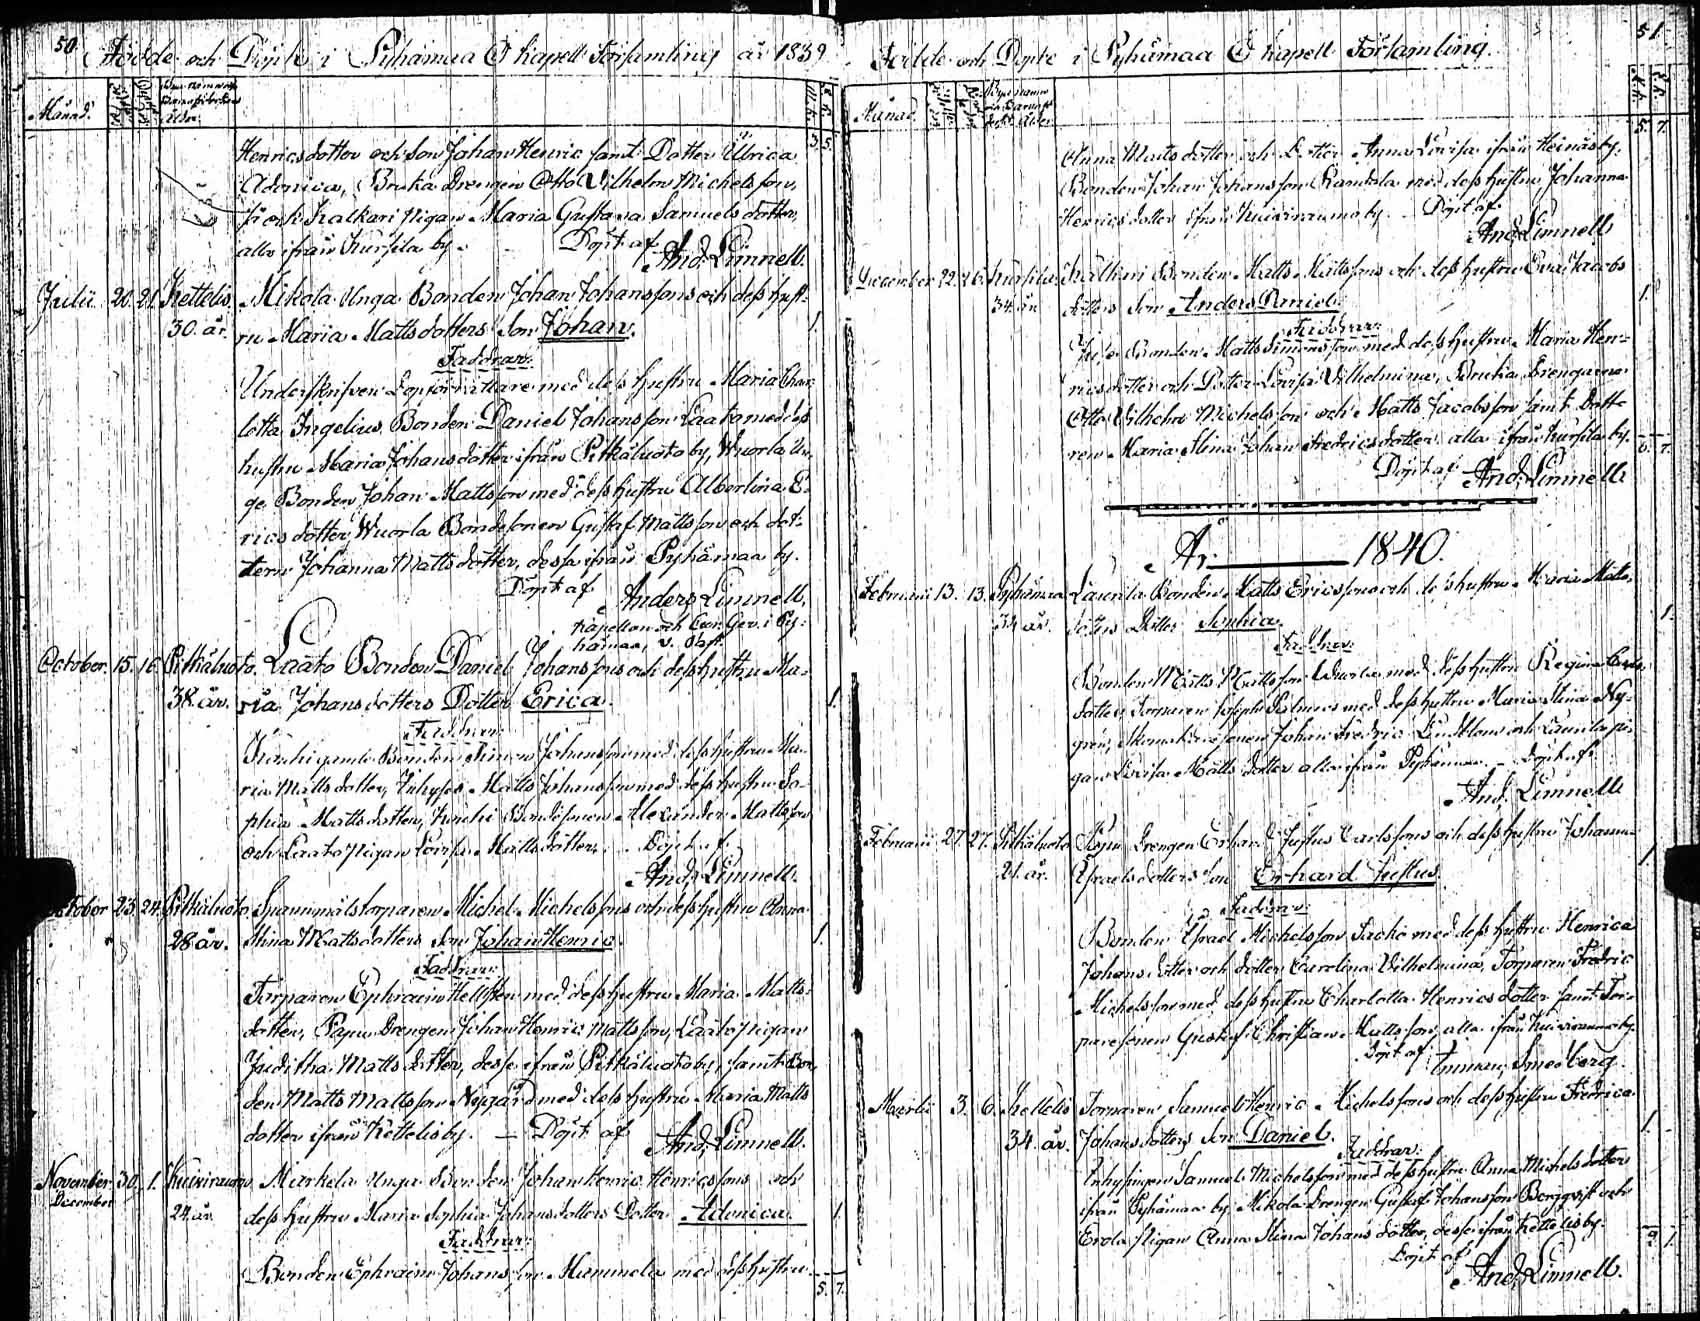 50.
Födde och Döpte i Pyhämaa Ö kapell Församling år 1839
Månad.
3. 5.
Henricsdotter och Son Johan Henric samt Dotter Ulrica
Adonica, Bruka Drengen Otto Vilhelm Michelsson,
och Kalkari Pigan Maria Gustava Samuelsdotter,
alla ifrån Kursila by. Döpt af And. Limnell.
Julii 20. 21. Kettelis Mikola Unga Bonden Johan Johanssons och dess hust-
30. år. ru Maria Mattsdotters Son Johan. 1.
Faddrar:
Underskrifven Dopförrättare med dess hustru Maria Char-
lotta Ingelius, Bonden Daniel Johansson Laato med dess
hustru Maria Johansdotter ifrån Pitkäluoto by, Wuorla Un-
ge Bonden Johan Mattsson med dess hustru Albertina E-
ricsdotter, Wuorla Bondesonen Gustaf Mattsson och dot-
tern Johanna Mattsdotter, dessa ifrån Pyhämaa by.
Döpt af Anders Limnell,
Kapellan och
hämaa, v. Past.
October. 15. 16. Pitkäluoto. Laato Bonden Daniel Johanssons och dess hustru Ma-
38. år. ria Johansdotters Dotter Erica. 1.
Faddrar:
gamle Bonden Simon Johansson med dess hustru Ma-
ria Mattsdotter, Matts Johansson med dess hustru So-
phia Mattsdotter, Bondesonen Alexander Mattsson
och Laato Pigan Lovisa Mattsdotter. Döpt af
And. Limnell.
October 23. 24. Pitkäluoto. Spannmålstorparen Michel Michelssons och dess hustru Anna
28 år. Stina Mattsdotters Son Johan Henric. 1.
Faddrar:
Torparen Ephraim Hellsten med dess hustru Maria Matts-
dotter, Drengen Johan Henric Mattsson, Laato Pigan
Juditha Mattsdotter, desse ifrån Pitkäluoto by, samt Bon-
den Matts Mattsson Nygård med dess hustru Maria Matts
dotter ifrån Kettelis by. — Döpt af And. Limnell.
November 30. 1. Kuivirauma Markela Unga Bonden Johan Henric Henricssons och
December 24. år dess hustru Maria Sophia Johansdotters Dotter Adonica. 1.
Faddrar:
Bonden Ephraim Johansson Mammela med dess hustru
5. 7.
51.
Födde och Döpte i Pyhämaa Ö kapell Församling.
Månad.
5. 7.
Anna Mattsdotter och Dotter Anna Lovisa ifrån Heinäs by.
Bonden Johan Johansson Rantala med dess hustru Johanna
Henricsdotter ifrån Kuivirauma by. Döpt af
And. Limnell
December 22. 26. Kursila Kälkäri Bonden Matts Mattssons och dess hustru Eva Jacobs
34. år dotters Son Anders Daniel. 1.
Faddrar:
Bonden Matts Simonsson med dess hustru Maria Hen-
ricsdotter och Dotter Lovisa Vilhelmina, Bruka Drengarne
Otto Vilhelm Michelsson och Matts Jacobsson samt Dotte-
ren Maria Stina Johan Fredricsdotter, alla ifrån Kursila by. 6. 7.
Döpt af And. Limnell
År 1840.
Februarii 13. 13. Pyhämaa Launila Bonden Matts Ericssons och dess hustru Maria Matts-
34 år. dotters Dotter Sophia. 1.
Faddrar:
Bonden Matts Mattsson Wuorla med dess hustru Regina
dotter, Torparen Joseph med dess hustru Maria Stina Ny-
gren, Johan Fredric Lindblom och Launila pi-
gan Lovisa Mattsdotter alla ifrån Pyhämaa. — Döpt af
And. Limnell
Februarii 27. 27. Pitkäluoto Drengen Erhard Justus Carlssons och dess hustru Johanna
21. år. Israelsdotters Son Erhard Justus. 1
Faddrar:
Bonden Israel Michelsson Sacko med dess hustru Henrica
Johansdotter och dotter Carolina Vilhelmina, Torparen Fredric
Michelsson med dess hustru Charlotta Henricsdotter samt Tor-
paresonen Gustaf Christian Mattsson, alla ifrån Kuivirauma by.
Döpt af Emman. Smedberg.
Martii 3. 6. Kettelis Torparen Samuel Henric Michelssons och dess hustru Fredrica
34. år. Johansdotters Son Daniel. 1.
Faddrar:
Inhysingen Samuel Michelsson med dess hustru Anna Michelsdotter
ifrån Pyhämaa by. Mikola Drengen Gustaf Johansson Bergqvist och
Erola Pigan Anna Stina Johansdotter, desse ifrån Kettelis by.
Döpt af
And. Limnell.